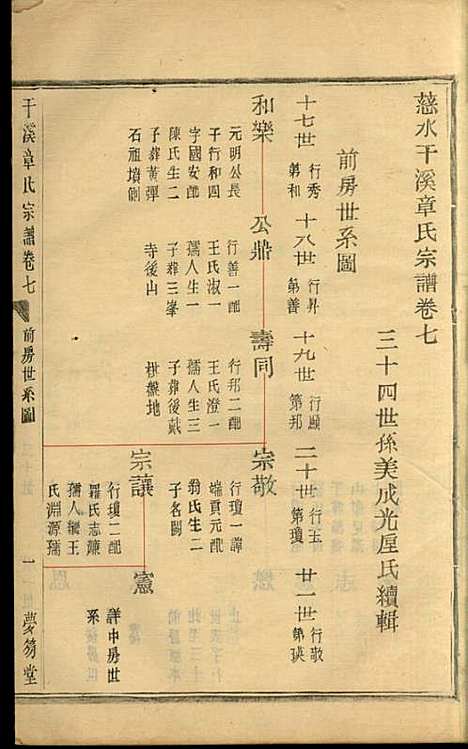 慈水干溪章氏宗譜卷七
三十四世孫美成光厘氏續輯
前房世系圖
十七世
行秀
第和
十八世
行昇
第善
十九世
行顯
第邦
二十世
行玉
第瓊
廿一世
行敬
第瑛
和樂
元明公長
子行和四
字國安配
陳氏生二
子葬黃彈
石祖墳側
公鼎
行善一配
王氏淑一
孺人生一
子葬三峯
寺後山
壽同
行邦二配
王氏澄一
孺人生三
子葬後戴
棋盤地
宗敬
行瓊一諱
端頁元配
翁氏生二
子名閞
宗讓
行瓊二配
羅氏志蓮
孺人繼王
氏淵源孺
憲
詳中房世
系
干溪章氏宗譜卷七
前房世系圖
一
夢芴堂